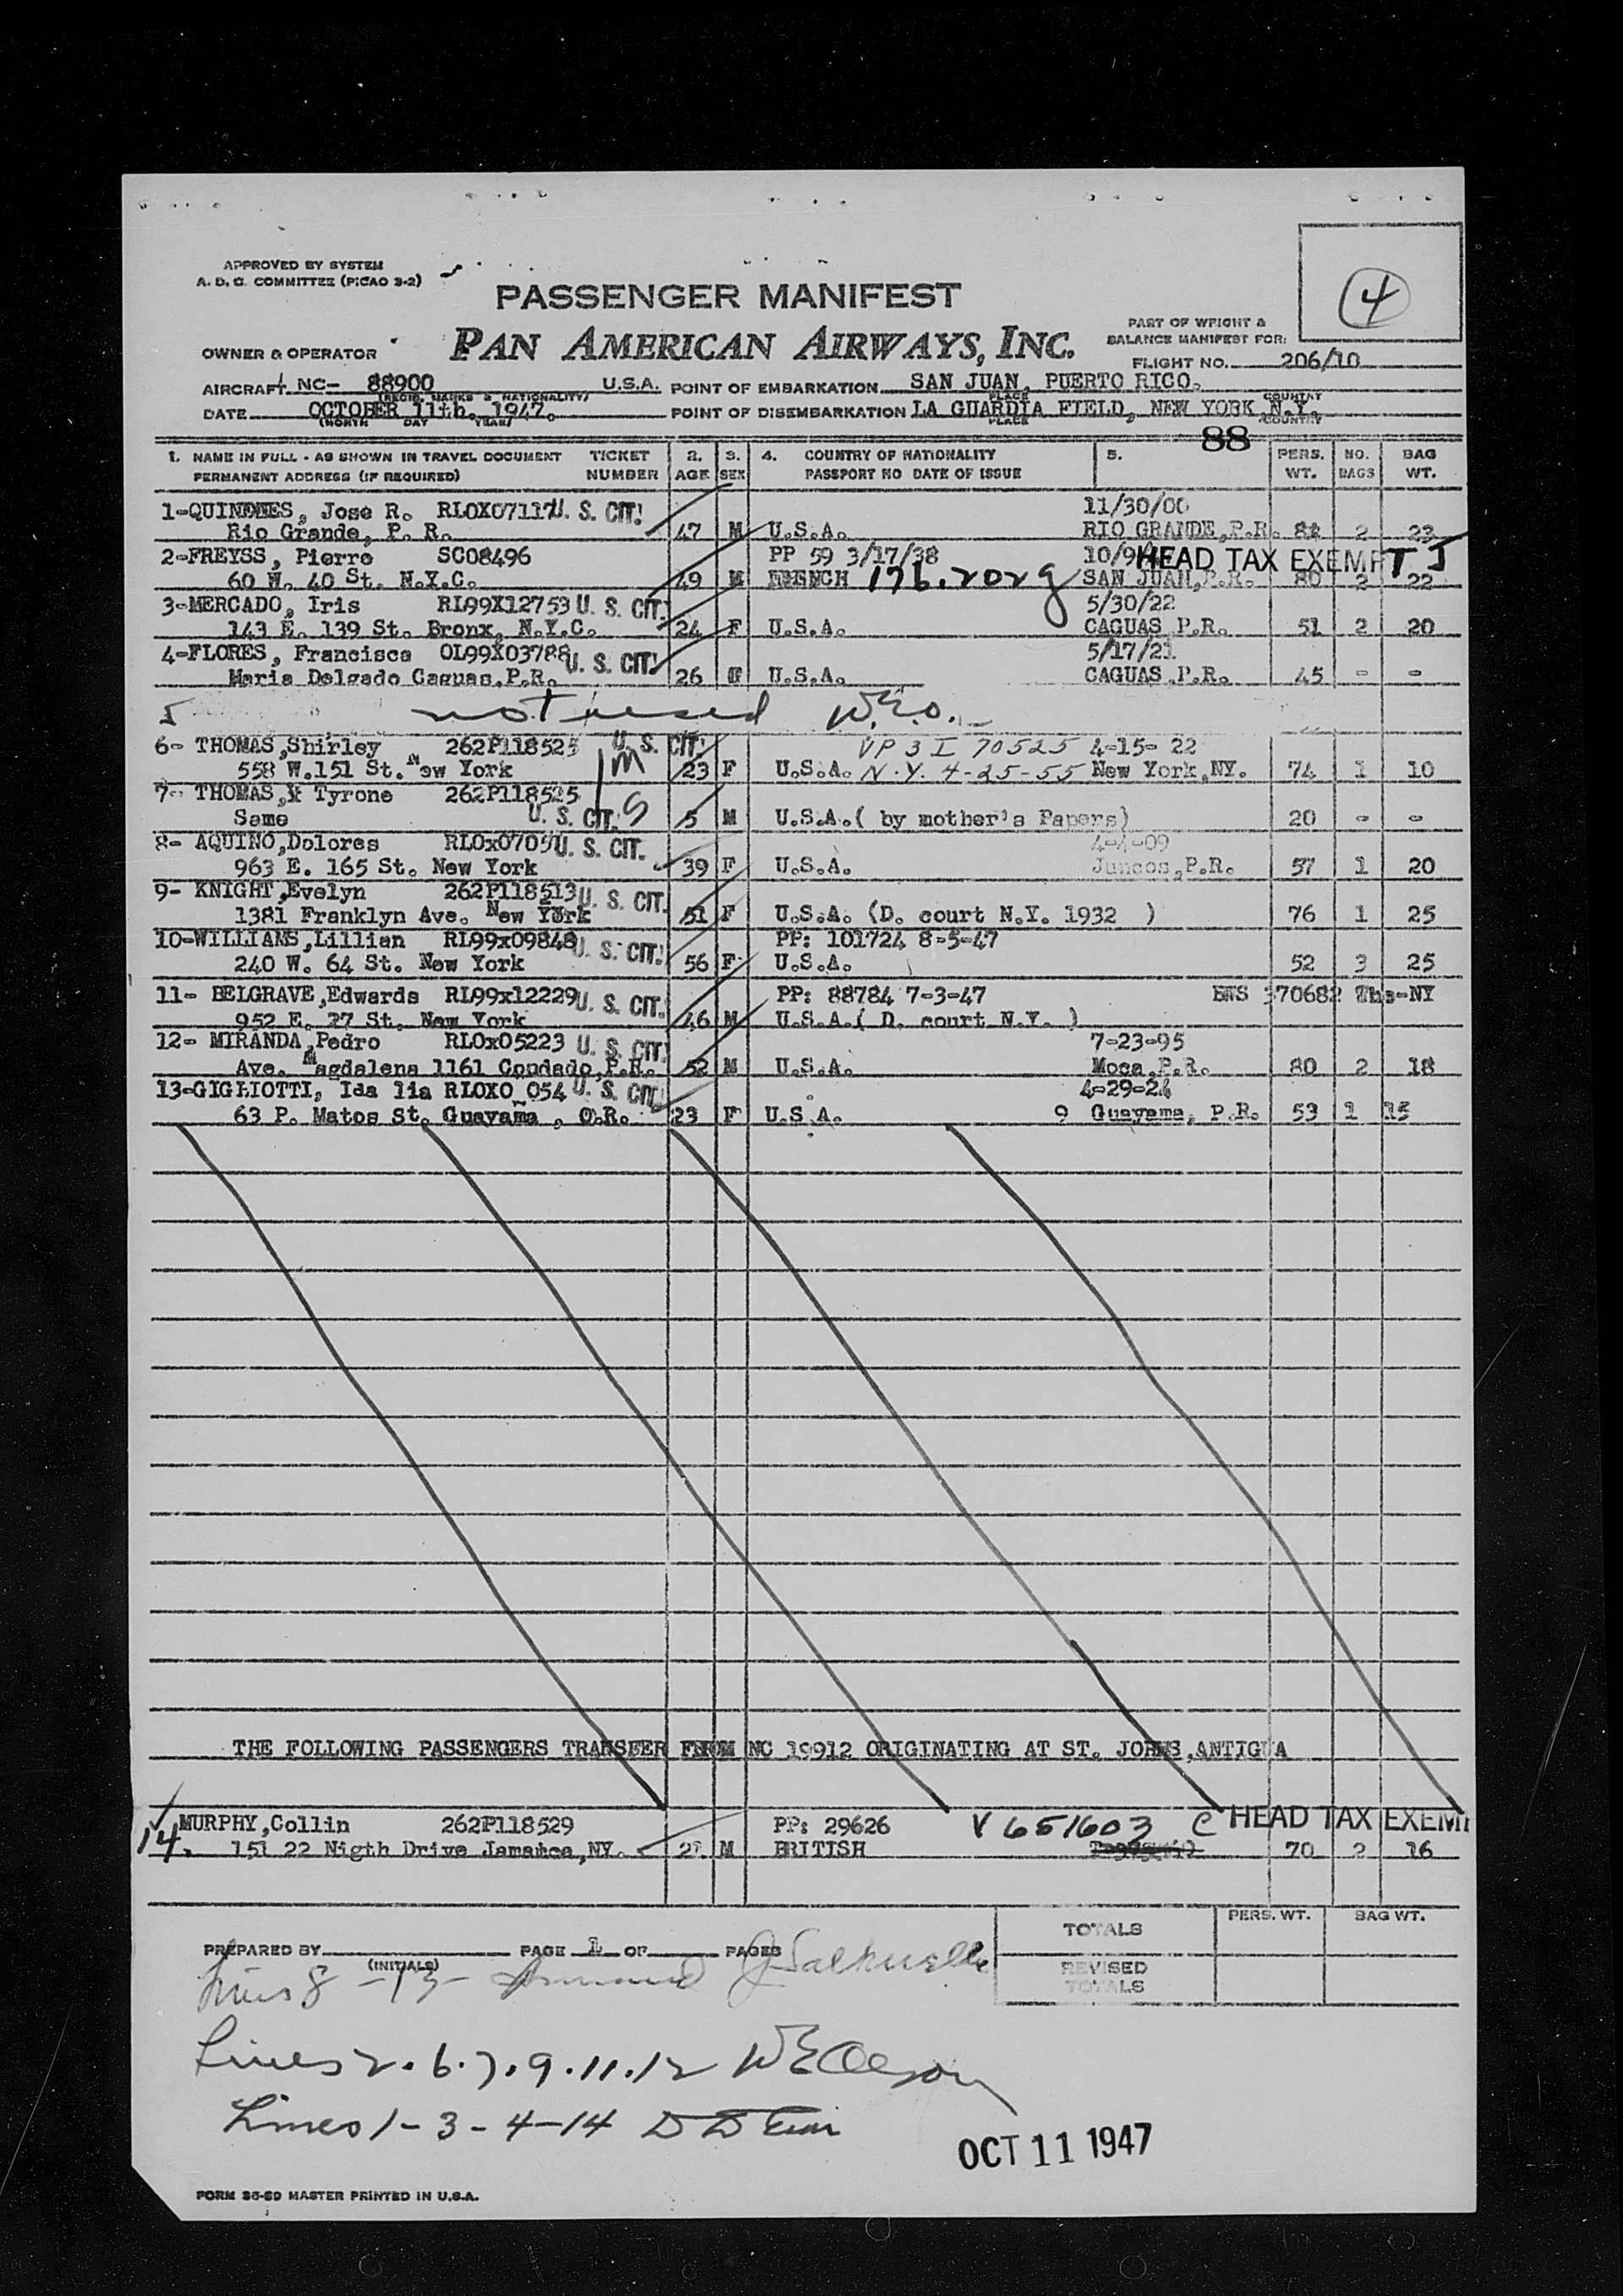 4
APPROVED BY SYSTEM
A. D. C. COMMITTEE (PICAO 3-2)
PASSENGER MANIFEST
PAN AMERICAN AIRWAYS, INC.
PART OF WEIGHT &
BALANCE MANIFEST FOR:
OWNER & OPERATOR
FLIGHT NO. 206/10
AIRCRAFT NC- 88900 U.S.A. POINT OF EMBARKATION SAN JUAN, PUERTO RICO.
(REGIS. MARKS & NATIONALITY) PLACE COUNTRY
DATE OCTOBER 11th. 1947. POINT OF DISEMBARKATION LA GUARDIA FIELD, NEW YORK N.Y.
(MONTH DAY YEAR) PLACE COUNTRY
88
1. NAME IN FULL - AS SHOWN IN TRAVEL DOCUMENT TICKET 2. 3. 4. COUNTRY OF NATIONALITY 5. PERS. NO. BAG
PERMANENT ADDRESS (IF REQUIRED) NUMBER AGE SEX PASSPORT NO DATE OF ISSUE WT. BAGS WT.
Jose R. RLOX07117 U. S. CIT. 11/30/00
Rio Grande, P. R. 47 M U.S.A. RIO GRANDE, P.R. 2 23
2-FREYSS, Pierre SC08496 PP 59 3/17/38 HEAD TAX EXEMPT J
60 W. 40 St. N.Y.C. 49 M FRENCH SAN JUAN, P.R. 80 2 22
3-MERCADO, Iris RL99X12753 U. S. CIT. 5/30/22
143 E. 139 St. Bronx, N.Y.C. 24 F U.S.A. CAGUAS P.R. 51 2 20
4-FLORES, Francisca OL99X03788 U. S. CIT. 5/17/21
Maria Delgado Caguas.P.R. 26 U.S.A. CAGUAS P.R. 45 - -
5 not used W.E.O.
6- THOMAS,Shirley 262P118525 U. S. CIT. VP 3 I 70525 4-15- 22
558 W.151 St. New York 23 F U.S.A. N.Y. 4-25-55 New York,NY. 74 1 10
7- THOMAS, Tyrone 262P118525
Same U. S. CIT. 5 M U.S.A.( by mother's Papers) 20 - -
8- AQUINO,Dolores U. S. CIT. 4-4-09
963 E. 165 St. New York 39 F U.S.A. Juncos,P.R. 57 1 20
9- KNIGHT,Evelyn 262P118513 U. S. CIT.
1381 Franklyn Ave. New York 51 F U.S.A. (D. court N.Y. 1932 ) 76 1 25
10-WILLIAMS,Lillian RL99x09848 U. S. CIT. PP: 101724 8-5-47
240 W. 64 St. New York 56 F U.S.A. 52 3 25
11- BELGRAVE,Edwards RL99x12229 U. S. CIT. PP: 88784 7-3-47
952 E. 27 St. New York 46 M U.S.A.( D. court N.Y. )
12- MIRANDA,Pedro RLOx05223 U. S. CIT. 7-23-95
Ave. Magdalena 1161 Condado,P.R. 52 M U.S.A. Moca,P.R. 80 2 18
13-GIGLIOTTI, Ida lia U. S. CIT. 4-29-24
63 P. Matos St. Guayama , O.R. 23 F U.S.A. 9 Guayama, P.R. 53 1 15
THE FOLLOWING PASSENGERS TRANSFER FROM NC 19912 ORIGINATING AT ST. JOHNS,ANTIGUA
MURPHY,Collin 262P118529 PP: 29626 V 651603 C HEAD TAX EXEM
14. 151 22 Nigth Drive Jamaica,NY. 21 M BRITISH 70 2 16
TOTALS PERS. WT. BAG WT.
PREPARED BY PAGE 1 OF PAGES
(INITIALS) REVISED
TOTALS
Lines 8 - 13 -
Lines 2.6.7.9.11.12 WEOlson
Lines 1-3-4-14
OCT 11 1947
FORM 36-60 MASTER PRINTED IN U.S.A.